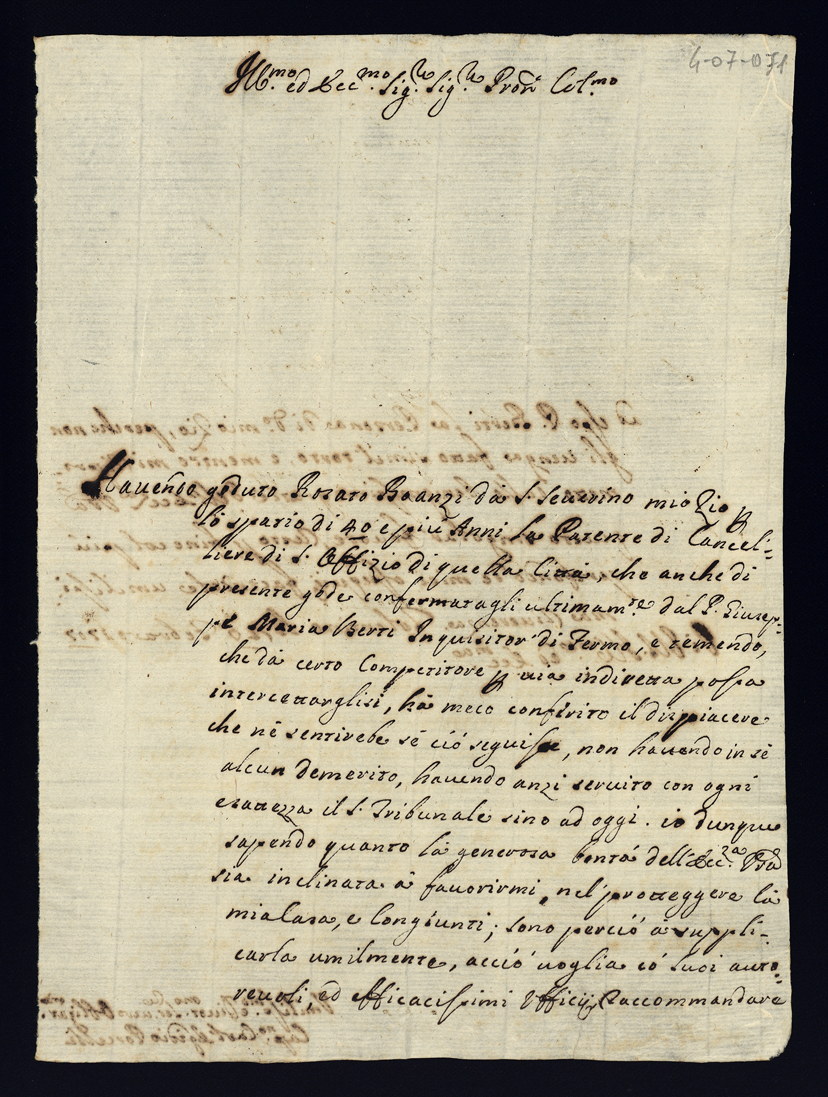 4-07-071
Ill.mo ed Ecc.mo Sig.re Sig.re Pron Col.mo
Havendo goduto Rosato Branzi da S. Severino mio Zio p
lo spatio di 40 e più Anni la Patente di Cancel-
liere di S. Offizio di quella Città, che anche di
presente gode confermatagli ultimam.te dal P. Giusep-
pe Maria Berti Inquisitor di Fermo, e temendo,
che dà certo Competitore p via indiretta possa
intercettarglisi, hà meco conferito il dispiacere
che nè sentirebe sè ciò seguisse, non havendo in sè
alcun demerito, havendo anzi servito con ogni
esattezza il S. Tribunale sino ad oggi. io dunque
sapendo quanto la generosa bontà dell'Ecc.za Pra
sia inclinata à favorirmi nel protteggere la
mia Casa, e Congiunti; sono perciò à suppli-
carla umilmente, acciò voglia có suoi auto-
revoli, ed efficacissimi Officij raccommandare